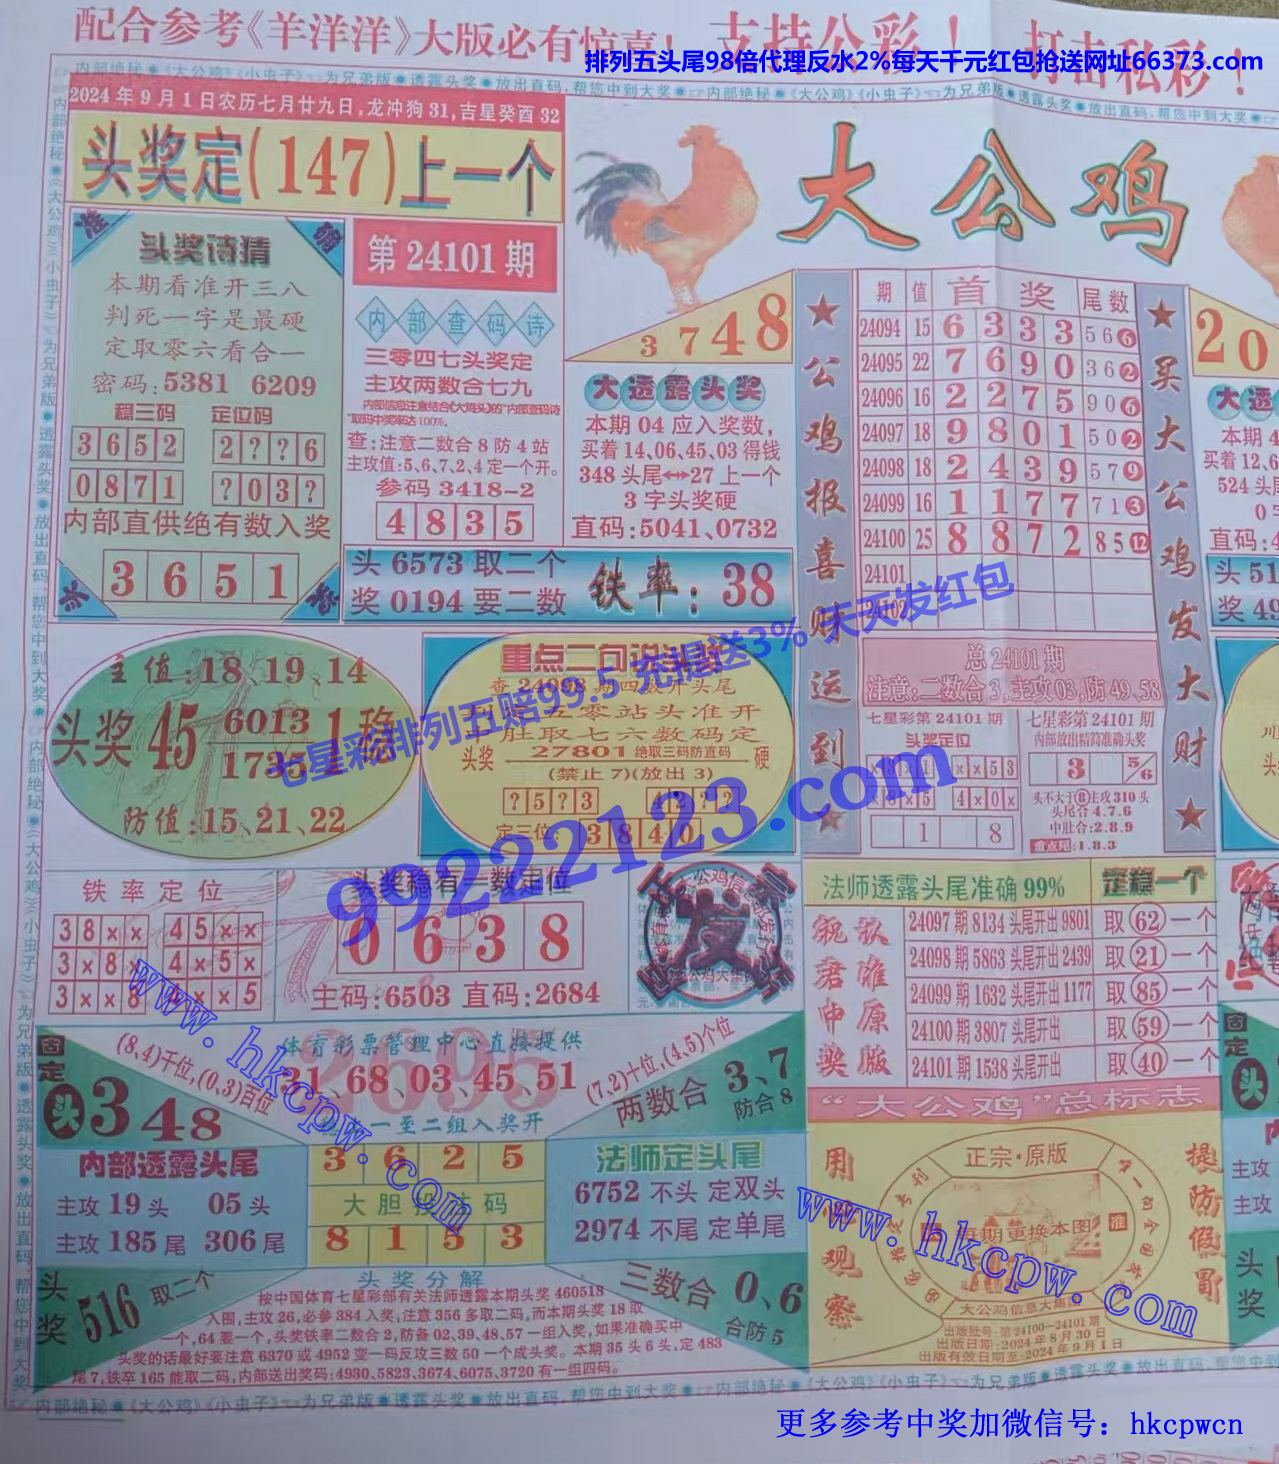 配合参考《羊洋洋》大版必有惊喜！ 支持公彩！ 打击私彩！
排列五头尾98倍代理反水2%每天千元红包抢送网址66373.com
内部绝秘●《大公鸡》《小虫子》☜为兄弟版●透露头奖●放出直码,帮您中到大奖●☞内部绝秘●《大公鸡》《小虫子》☜为兄弟版●透露头奖●放出直码,帮您中到大奖●
2024年9月1日农历七月廿九日,龙冲狗31,吉星癸酉32
头奖定(147)上一个
大公鸡
准 确
头奖诗猜
本期看准开三八
判死一字是最硬
定取零六看合一
密码:5381 6209
稳三码 定位码
3652 2??6
0871 ?03?
内部直供绝有数入奖
3651
第24101期
内部查码诗
三零四七头奖定
主攻两数合七九
查:注意二数合8防4站
主攻值:5,6,7,2,4定一个开。
参码3418-2
4835
3748
大透露头奖
本期04应入奖数,
买着14,06,45,03得钱
348头尾↔27上一个
3字头奖硬
直码:5041,0732
头6573取二个
奖0194要二数
铁率:38
★公鸡报喜财运到★
期 值 首奖 尾数
24094 15 6333 566
24095 22 7690 362
24096 16 2275 906
24097 18 9801 502
24098 18 2439 579
24099 16 1177 713
24100 25 8872 8512
24101
24102
★买大公鸡发大财★
20
大透
本期4
买着12,6
524头尾
直码:4
头51
奖49
主值:18、19、14
头奖45 6013 1稳
1735
防值:15、21、22
重点二句说头奖
查24098期四数开头尾
五零站头准开
肚取七六数码定
头奖 27801绝取三码防直码 硬
(禁止7)(放出3)
?5?3
定三位:3840
总24101期
注意:二数合3,主攻03,防49,58
七星彩第24101期
头奖定位
×3×1 ××53
×8×5 4×0×
1 8
七星彩第24101期
内部放出精简准确头奖
3 5/6
头不大于⑧主攻310头
头尾合4.7.6
中肚合:2.8.9
重点尾:1.8.3
七星彩排列五赔99.5 充提送3% 天天发红包
99222123.com
铁率定位
38×× 45××
3×8× 4×5×
3××8 4××5
头奖稳有三数定位
0638
主码:6503 直码:2684
法师透露头尾准确99% 定稳一个
24097期8134头尾开出9801 取62一个
24098期5863头尾开出2439 取21一个
24099期1632头尾开出1177 取85一个
24100期3807头尾开出 取59一个
24101期1538头尾开出 取40一个
祝君中奖
认准原版
固定头348
(8,4)千位,(0,3)百位
体育彩票管理中心直接提供
2695
31、68、03、45、51
一至二组入奖开
(7,2)十位,(4,5)个位
两数合3、7
防合8
内部透露头尾
主攻19头 05头
主攻185尾 306尾
3625
大胆投注码
8153
法师定头尾
6752不头定双头
2974不尾定单尾
头奖516取二个
三数合0、6
合防5
头奖分解
按中国体育七星彩部有关法师透露本期头奖460518
入围,主攻26,必参384入奖,注意356多取二码,而本期头奖18取
一个,64要一个,头奖铁率二数合2,防备02,39,48,57一组入奖,如果准确买中
头奖的话最好要注意6370或4952变一码反攻三数50一个成头奖。本期35头6头,定483
尾7,铁卒165能取二码,内部送出奖码:4930、5823、3674、6075、3720有一组四码。
“大公鸡”总标志
用心观察
提防假冒
正宗·原版
每期更换本图
准
大公鸡信息大集团
出版批号:第24100—24101期
出版日期:2024年8月30日
出版有效日期至:2024年9月1日
www.hkcpw.com
www.hkcpw.com
内部绝秘●《大公鸡》《小虫子》☜为兄弟版●透露头奖●放出直码,帮您中到大奖●☞内部绝秘●《大公鸡》《小虫子》☜为兄弟版●透露头奖●放出直码,帮您中到大奖
更多参考中奖加微信号：hkcpwcn